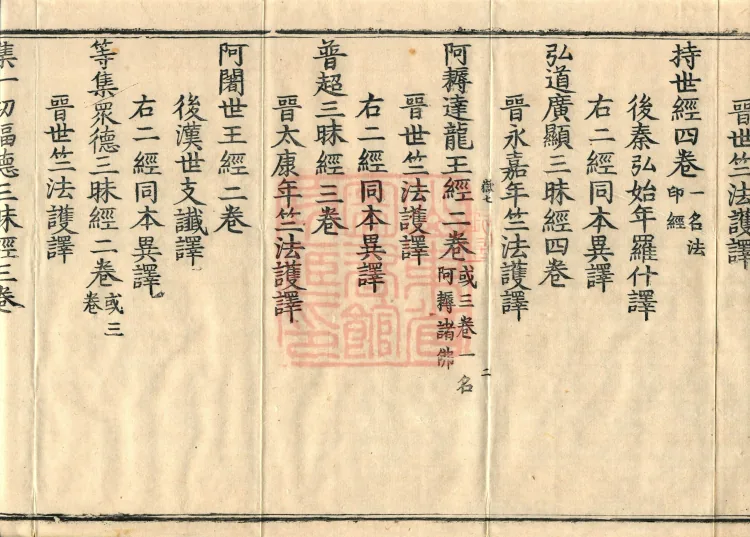 晉世竺法護譯
持世經四卷一名法印經
後秦弘始年羅什譯
右二經同本異譯
弘道廣顯三昧經四卷
晉永嘉年竺法護譯
二
阿耨達龍王經二卷或三卷一名阿耨諸佛
晉世竺法護譯
右二經同本異譯
普超三昧經三卷
晉太康年竺法護譯
阿闍世王經二卷
後漢世支讖譯
右二經同本異譯
等集眾德三昧經二卷或三卷
晉世竺法護譯
集一切福德三昧經三卷